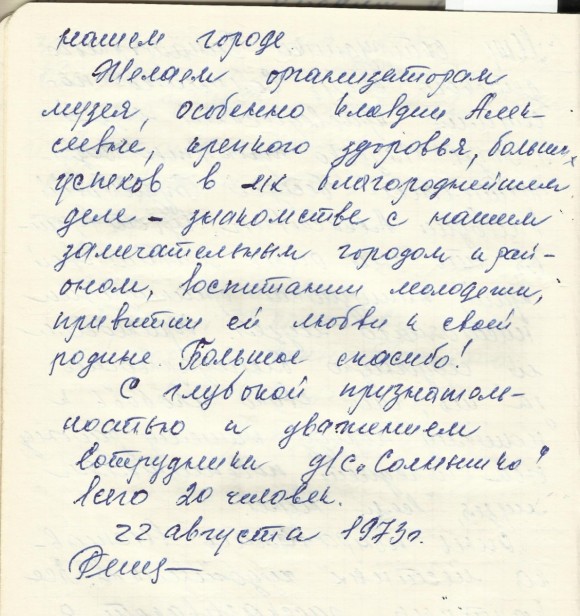 нашем городе.
Желаем организаторам
музея, особенно Клавдии Алек-
сеевне, крепкого здоровья, больших
успехов в их благороднейшем
деле - знакомстве с нашем
замечательным городом и рай-
оном, воспитании молодежи,
привитии ей любви к своей
родине. Большое спасибо!
С глубокой признатель-
ностью и уважением
сотрудники д/с „Солнышко"
всего 20 человек.
22 августа 1973г.